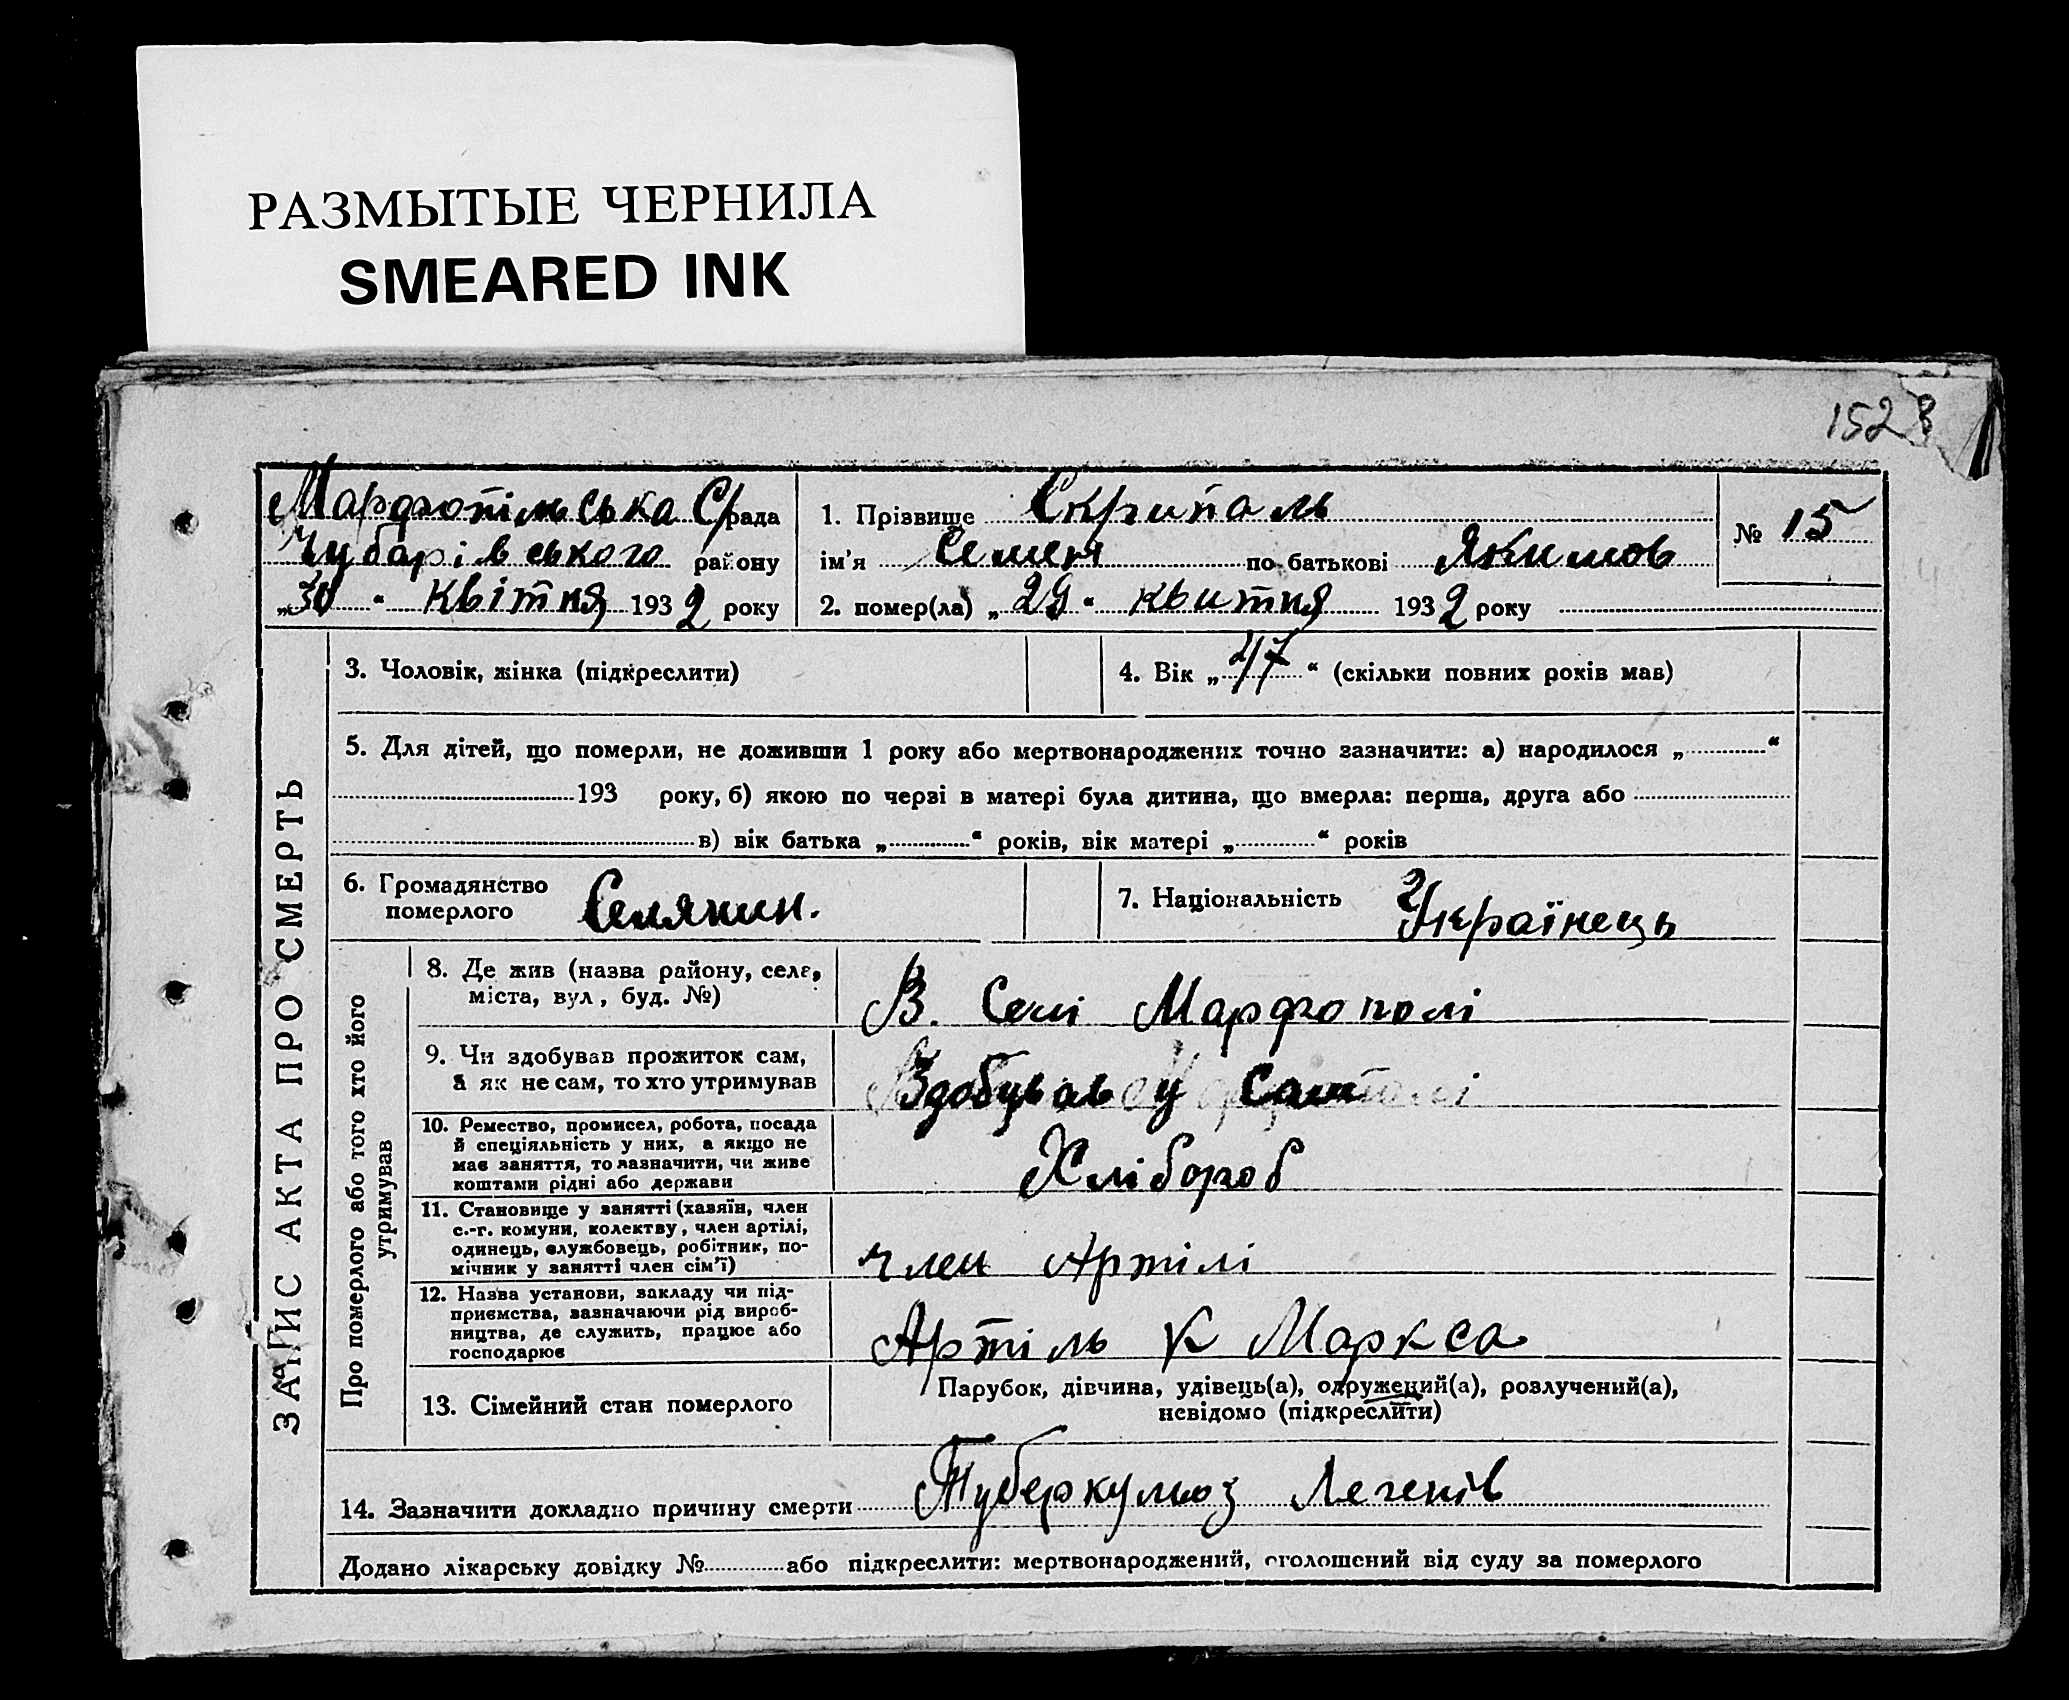 РАЗМЫТЫЕ ЧЕРНИЛА
SMEARED INK
1528
Марфопільська С/рада
Чубарівського району
„30“ Квітня 1932 року
1. Прізвище Скрипаль
ім'я Семен по батькові Якимов
2. помер(ла) „29“ квитня 1932 року
№ 15
ЗАПИС АКТА ПРО СМЕРТЬ
3. Чоловік, жінка (підкреслити)
4. Вік „47“ (скільки повних років мав)
5. Для дітей, що померли, не доживши 1 року або мертвонароджених точно зазначити: а) народилося „ “
193 року, б) якою по черзі в матері була дитина, що вмерла: перша, друга або
в) вік батька „ “ років, вік матері „ “ років
6. Громадянство
померлого Селянин.
7. Національність Українець
Про померлого або того хто його
утримував
8. Де жив (назва району, села,
міста, вул, буд. №)
В. Селі Марфополі
9. Чи здобував прожиток сам,
а як не сам, то хто утримував
Здобував у Сам
10. Ремество, промисел, робота, посада
й спеціяльність у них, а якщо не
має заняття, то зазначити, чи живе
коштами рідні або держави
Хлібороб
11. Становище у занятті (хазяїн, член
с.-г. комуни, колектву, член артілі,
одинець, службовець, робітник, по-
мічник у занятті член сім'ї)
член Артілі
12. Назва установи, закладу чи під-
приємства, зазначаючи рід вироб-
ництва, де служить, працює або
господарює
Артіль К Маркса
13. Сімейний стан померлого
Парубок, дівчина, удівець(а), одружений(а), розлучений(а),
невідомо (підкреслити)
14. Зазначити докладно причину смерти Туберкульоз Легенів
Додано лікарську довідку № або підкреслити: мертвонароджений, оголошений від суду за померлого